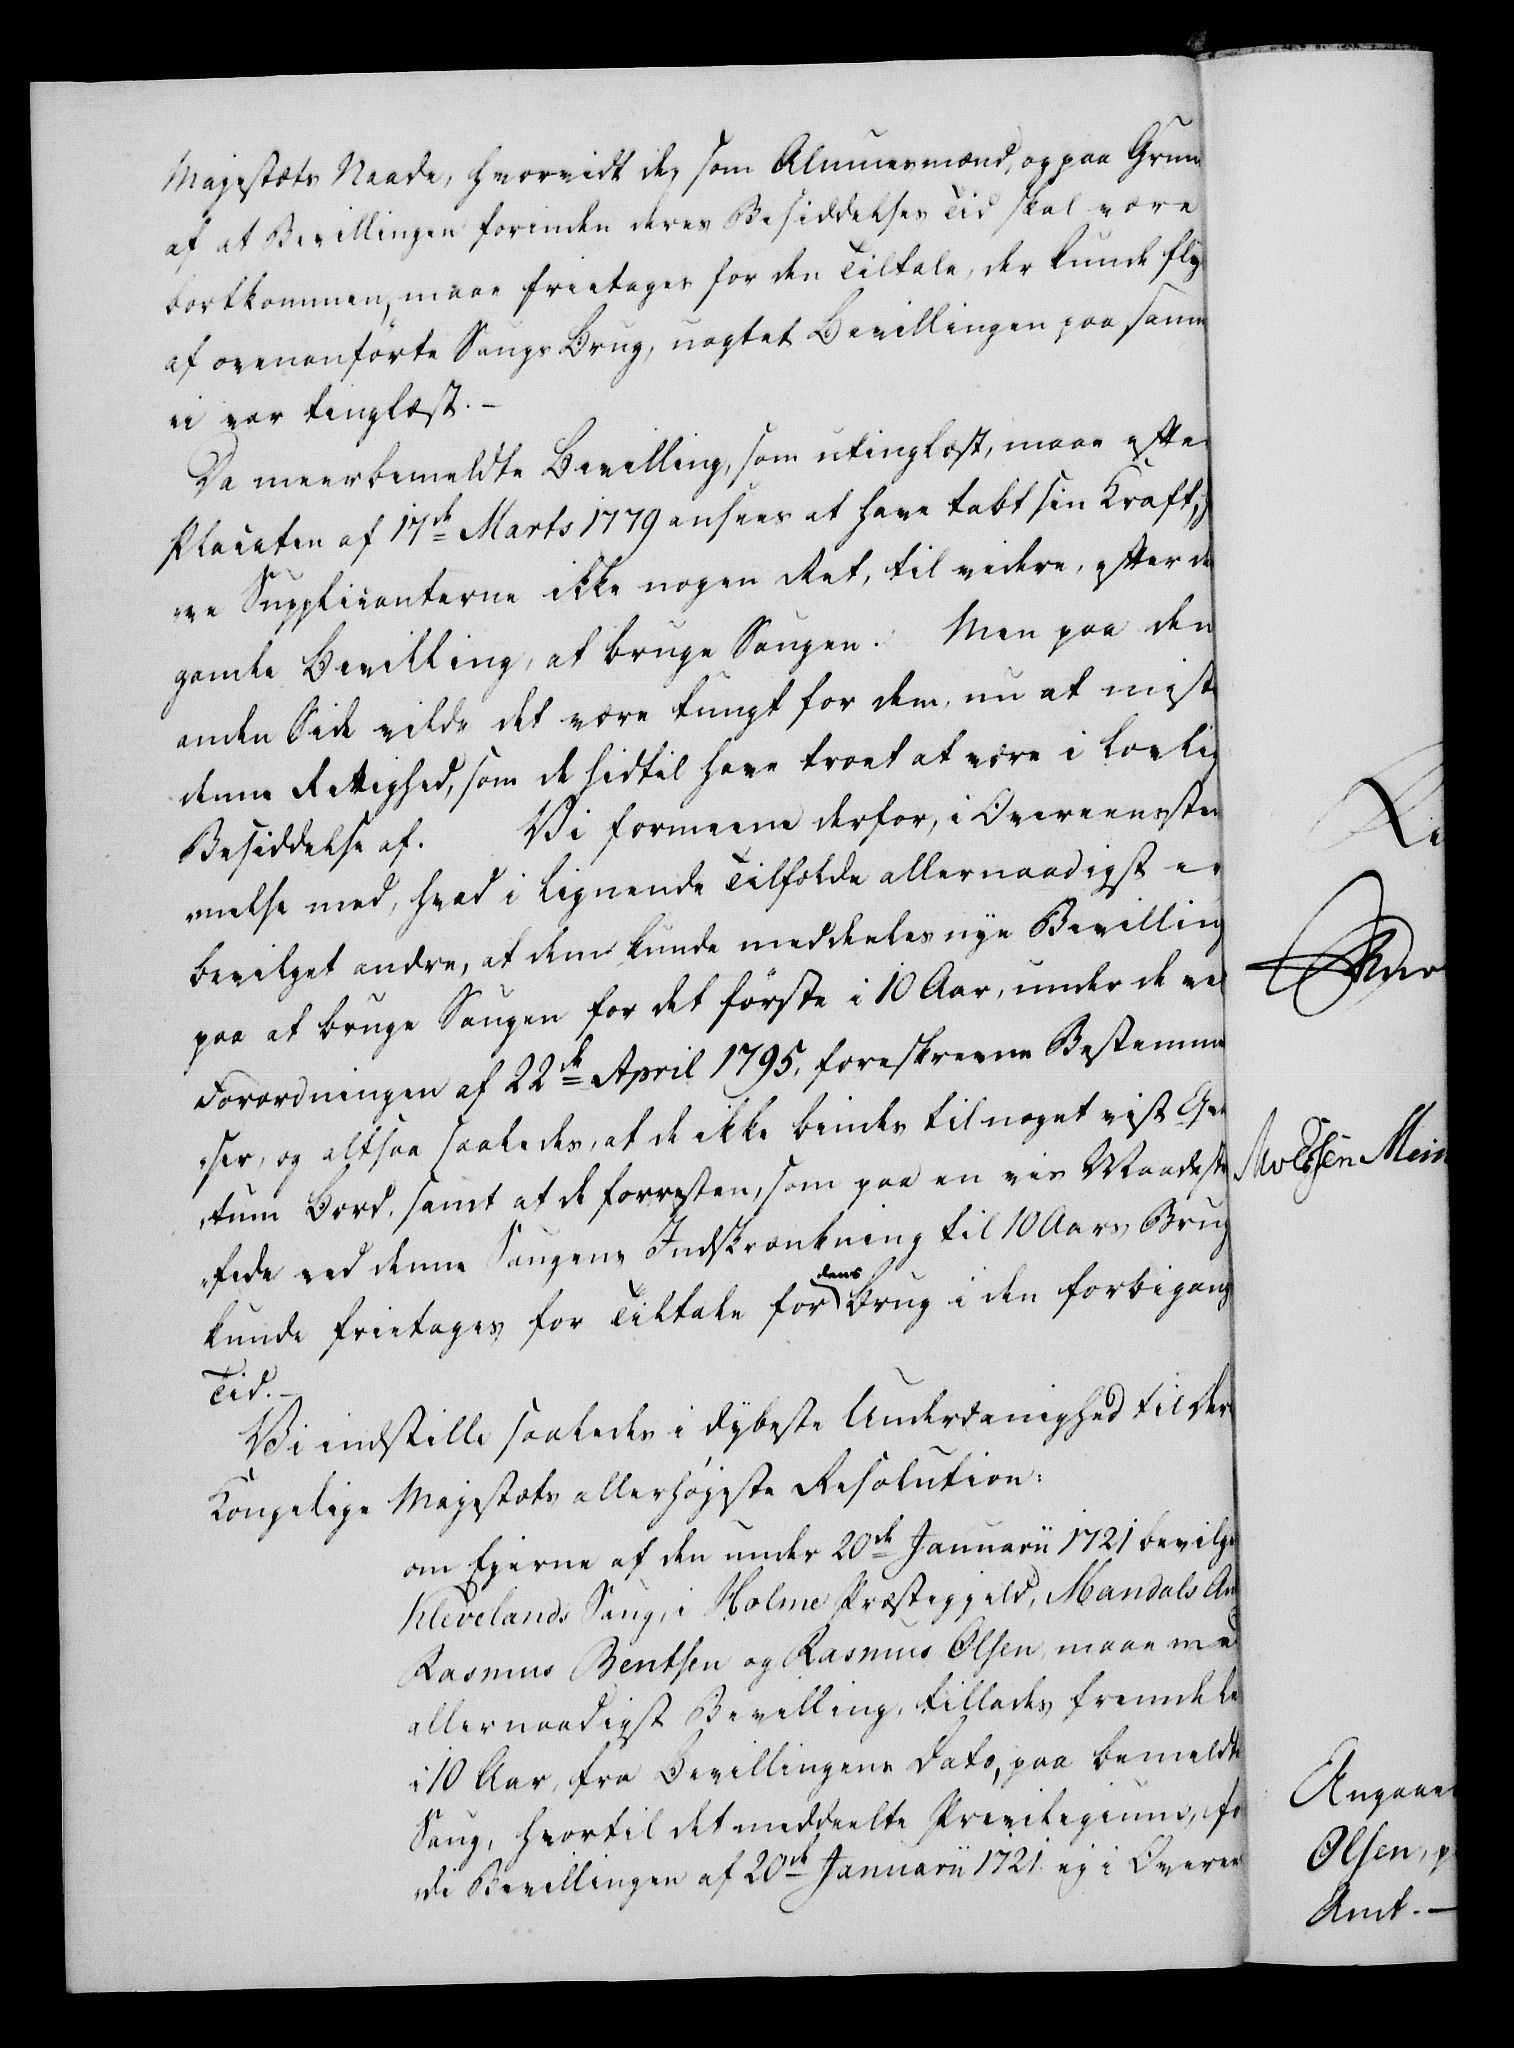 Majestæts Naade, hvorvidt de, som Almuesmænd, og paa Grun
af at Bevillingen forinden deres Besiddelses Tid skal være
bortkommen, maae frietages for den Tiltale, der kunde fly
af ovenanførte Saugs Brug, uagtet Bevillingen paa samm
ei var tinglæst. –
Da meerbemeldte Bevilling, som utinglæst, maae efter
Placaten af 17de Marts 1779 ansees at have tabt sin Kraft, h
ve Supplicanterne ikke nogen Ret, til videre, efter de
gamle Bevilling, at bruge Saugen. Men paa den
anden Side vilde det være tungt for dem, nu at miste
denne Rettighed, som de hidtil have troet at være i lovlig
Besiddelse af. Vi formeene derfor, i Overeensstem
melse med, hvad i lignende Tilfælde allernaadigst er
bevilget andre, at dem kunde meddeeles nye Bevilling
paa at bruge Saugen for det første i 10 Aar, under de ved
Forordningen af 22de April 1795, foreskrevne Bestemme
ser, og altsaa saaledes, at de ikke bindes til noget vist Qvan
tum Bord, samt at de forresten, som paa en vis Maade st
fede ved denne Saugens Indskrænkning til 10 Aars Brug
kunde frietages for Tiltale for dens Brug i den forbigang
Tid. –
Vi indstille saaledes i dybeste Underdanighed til Der
Kongelige Majestæts allerhøjeste Resolution:
om Ejerne af den under 20de Januarii 1721 bevilge
Klevelands Saug, i Holme Præstegjeld, Mandals Am
Rasmus Bentsen og Rasmus Olsen, maae med
allernaadigst Bevilling, tillades fremdele
i 10 Aar, fra Bevillingens Dato, paa bemeldte
Saug, hvortil det meddeelte Privilegium, fo
di Bevillingen af 20de Januarii 1721 ej i Overee
Angaae
Olsen, p
Amt. –